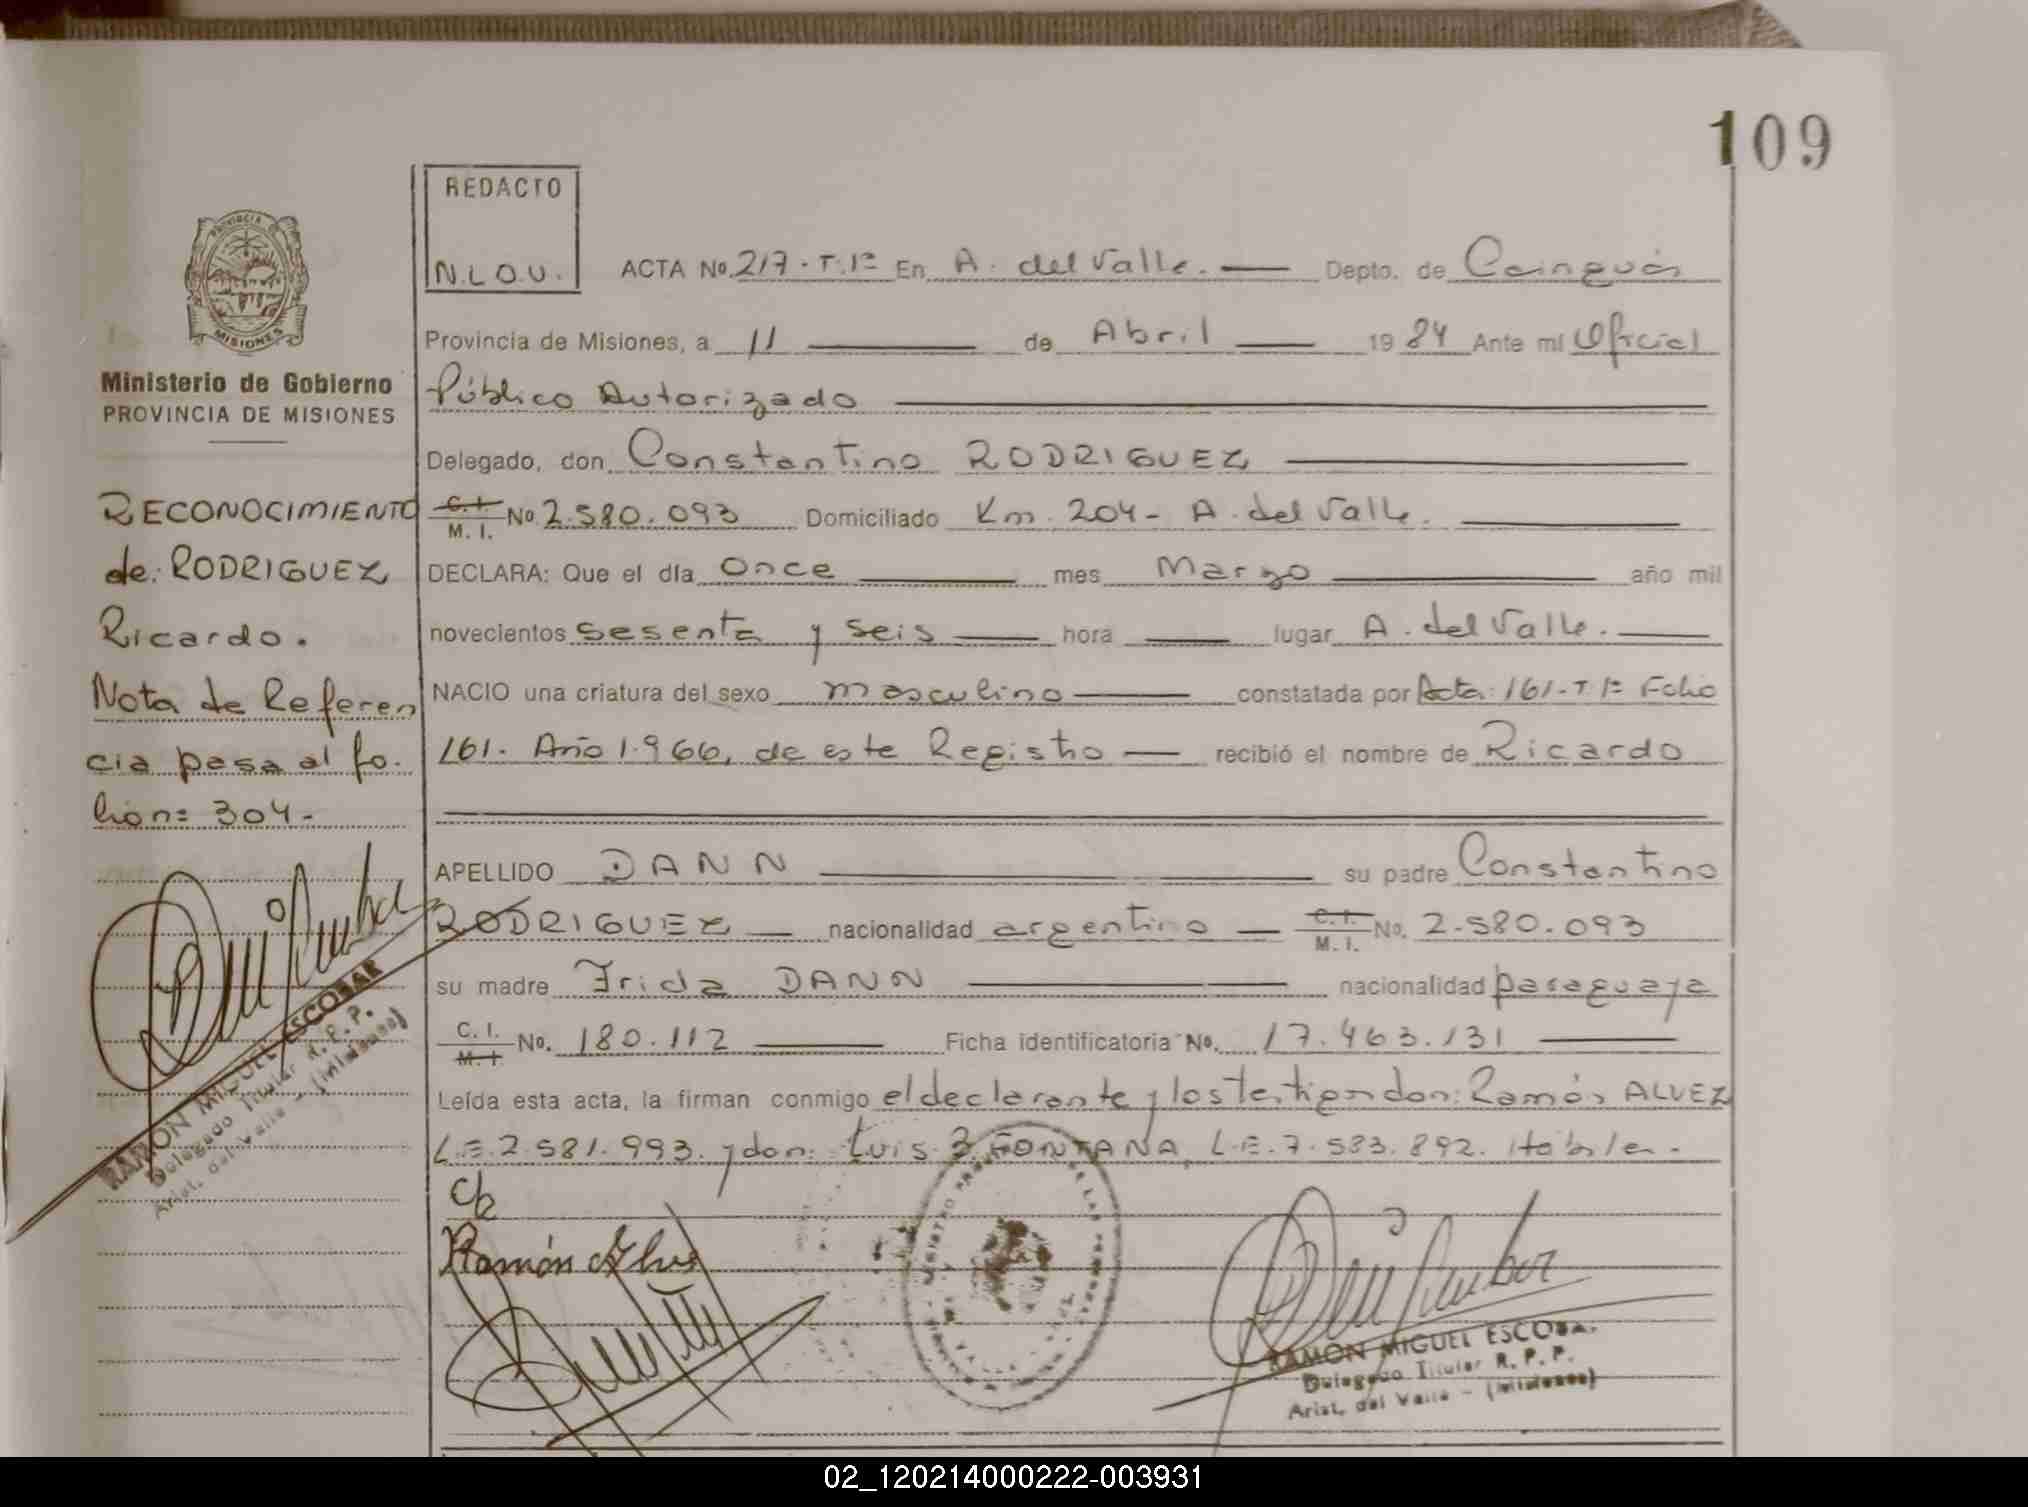 109
REDACTO
N.L.O.U.
ACTA No. 217 - T. 1º En A. del Valle. Depto. de Cainguás
Provincia de Misiones, a 11 de Abril 1984 Ante mí Oficial
Público Autorizado
Delegado, don Constantino RODRIGUEZ
C. I. M. I. No. 2.580.093 Domiciliado Km. 204 - A. del Valle.
DECLARA: Que el día once mes Marzo año mil
novecientos sesenta y seis hora lugar A. del Valle.
NACIO una criatura del sexo masculino constatada por Acta: 161 - T 1º Folio
161. Año 1.966, de este Registro recibió el nombre de Ricardo
APELLIDO DANN su padre Constantino
RODRIGUEZ nacionalidad argentino C. I. M. I. No. 2.580.093
su madre Frida DANN nacionalidad paraguaya
C. I. M. I. No. 180.112 Ficha identificatoria No. 17.463.131
Leída esta acta, la firman conmigo el declarante y los testigos don: Ramón ALVEZ
L.E. 2.581.993. y don: Luis B. FONTANA, L.E. 7.583.892. Hábiles.
Ramón Alves
RAMON MIGUEL ESCOBA.
Delegado Titular R. P. P.
Arist. del Valle - (Misiones)
PROVINCIA DE
MISIONES
Ministerio de Gobierno
PROVINCIA DE MISIONES
RECONOCIMIENTO
de: RODRIGUEZ
Ricardo.
Nota de Referen
cia pasa al fo.
lion: 304-
RAMON MIGUEL ESCOBAR
Delegado Titular R. P. P.
Arist. del Valle - (Misiones)
02_120214000222-003931